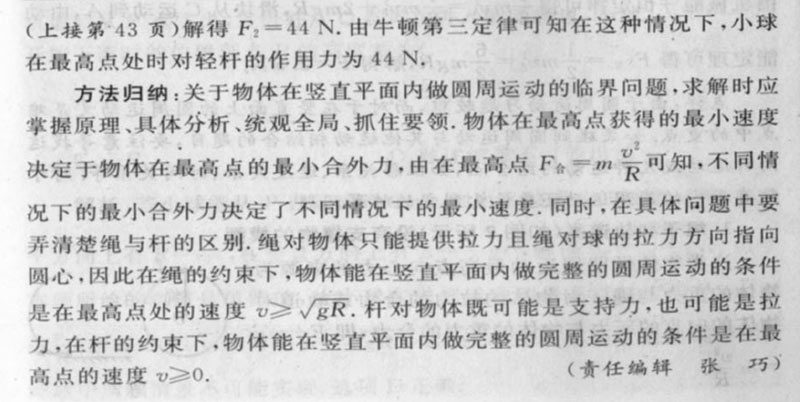 (上接第43页)解得 F₂=44 N. 由牛顿第三定律可知在这种情况下,小球
在最高点处时对轻杆的作用力为 44 N.
方法归纳:关于物体在竖直平面内做圆周运动的临界问题,求解时应
掌握原理、具体分析、统观全局、抓住要领. 物体在最高点获得的最小速度
决定于物体在最高点的最小合外力,由在最高点 F合=m v²/R 可知,不同情
况下的最小合外力决定了不同情况下的最小速度. 同时,在具体问题中要
弄清楚绳与杆的区别. 绳对物体只能提供拉力且绳对球的拉力方向指向
圆心,因此在绳的约束下,物体能在竖直平面内做完整的圆周运动的条件
是在最高点处的速度 v≥√gR. 杆对物体既可能是支持力,也可能是拉
力,在杆的约束下,物体能在竖直平面内做完整的圆周运动的条件是在最
高点的速度 v≥0. (责任编辑 张 巧)